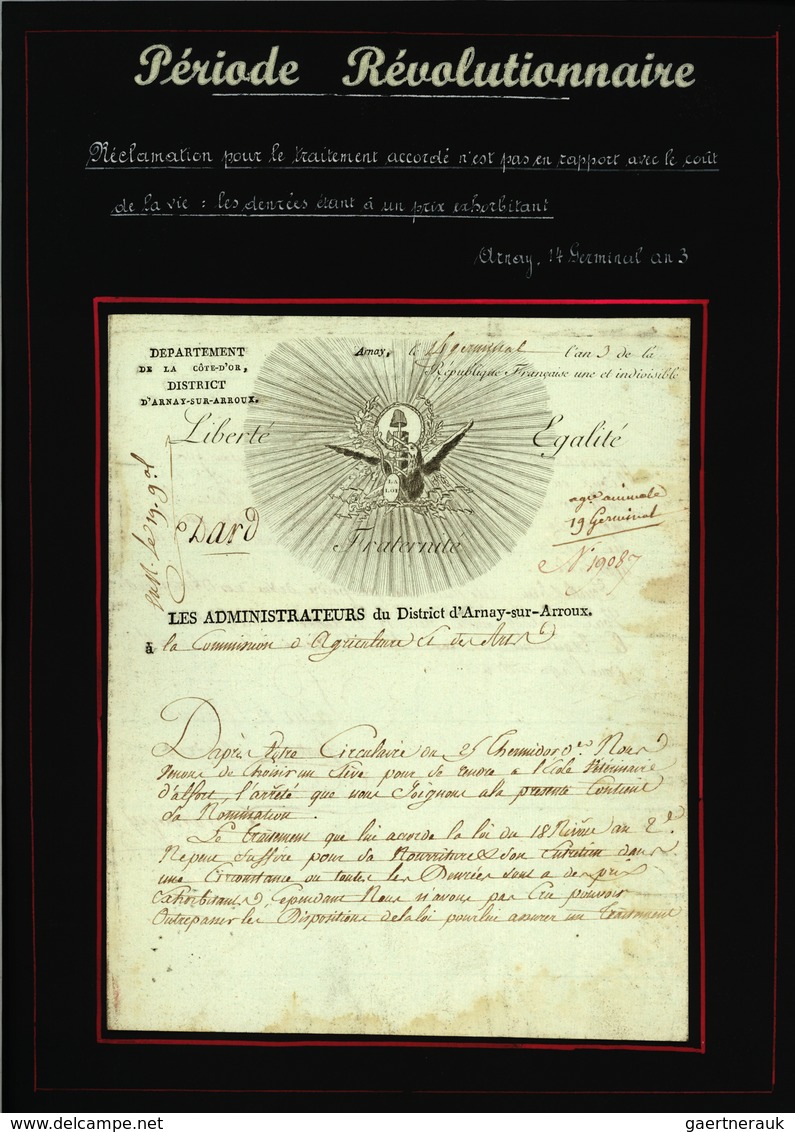 Période Révolutionnaire
Réclamation pour le traitement accordé n'est pas en rapport avec le coût
de la vie : les denrées étant à un prix exhorbitant
Arnay, 14 Germinal an 3
DEPARTEMENT
DE LA CÔTE-D'OR,
DISTRICT
D'ARNAY-SUR-ARROUX.
Arnay, le 14 germinal l'an 3 de la
République Française une et indivisible
Liberté
Egalité
LA
LOI
Dard
Fraternité
le 19. g.al
agre animale
19 Germinal
N. 19087
LES ADMINISTRATEURS du District d'Arnay-sur-Arroux.
à la Commission d'Agriculture & des Arts
Dapres Votre Circulaire du 25 thermidor der. Nous
Venons de Choisir un Eleve pour Se rendre a l'Ecole Veterinaire
d'alfort, l'arrêté que nous Joignons a la presente Contient
Sa Nomination.
Le traitement que lui accorde la loi du 18 Nivôse an 2e.
Ne peut Suffire pour Sa Nourriture & Son Entretien dans
une Circonstance ou toutes les Denrées sont a des prix
Exhorbitants, Cependant Nous n'avons pas Cru pouvoir
Outrepasser les Dispositions de la loi pour lui assurer un traitement
www.stampcircuit.com
gaertnerauk